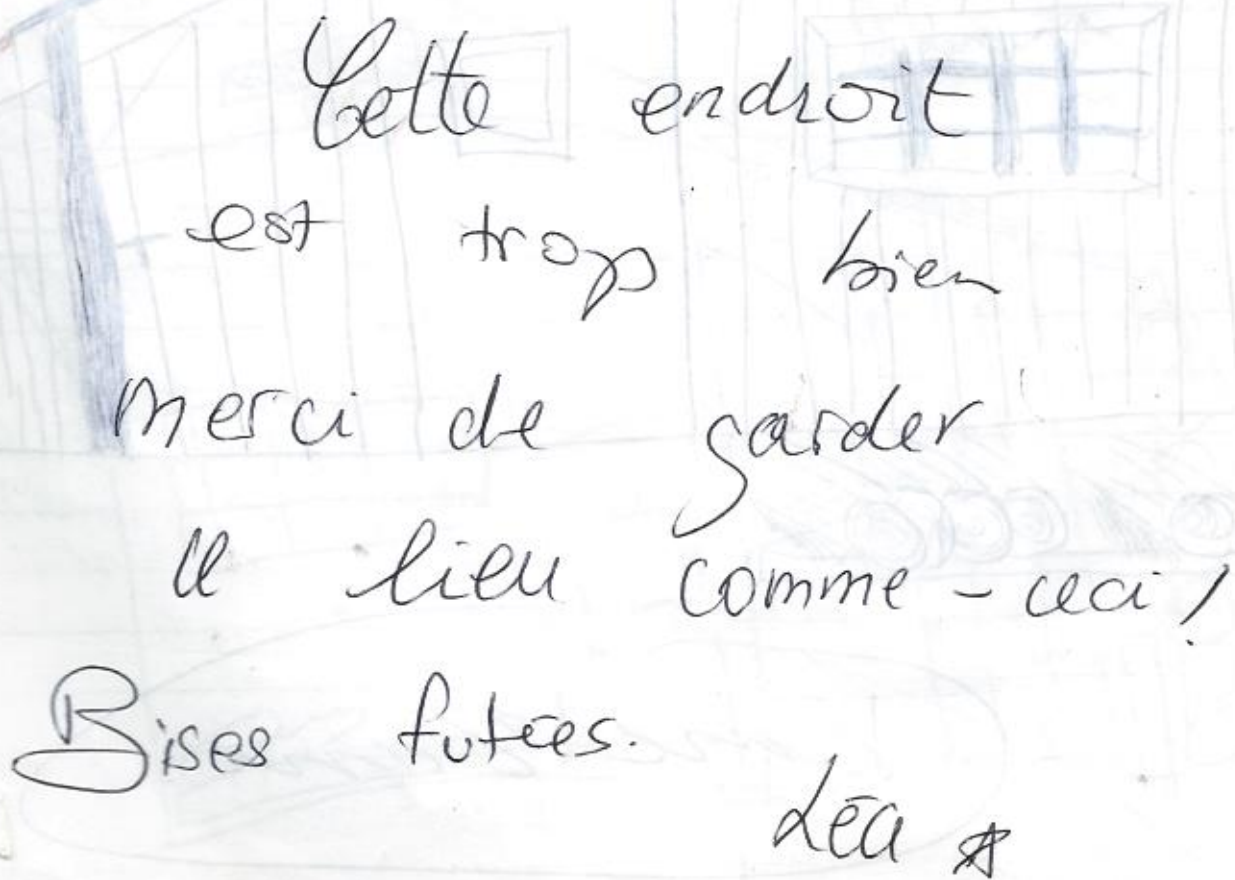 Cette endroit
est trop bien
merci de garder
ce lieu comme-ceci!
Bises futées.
Léa